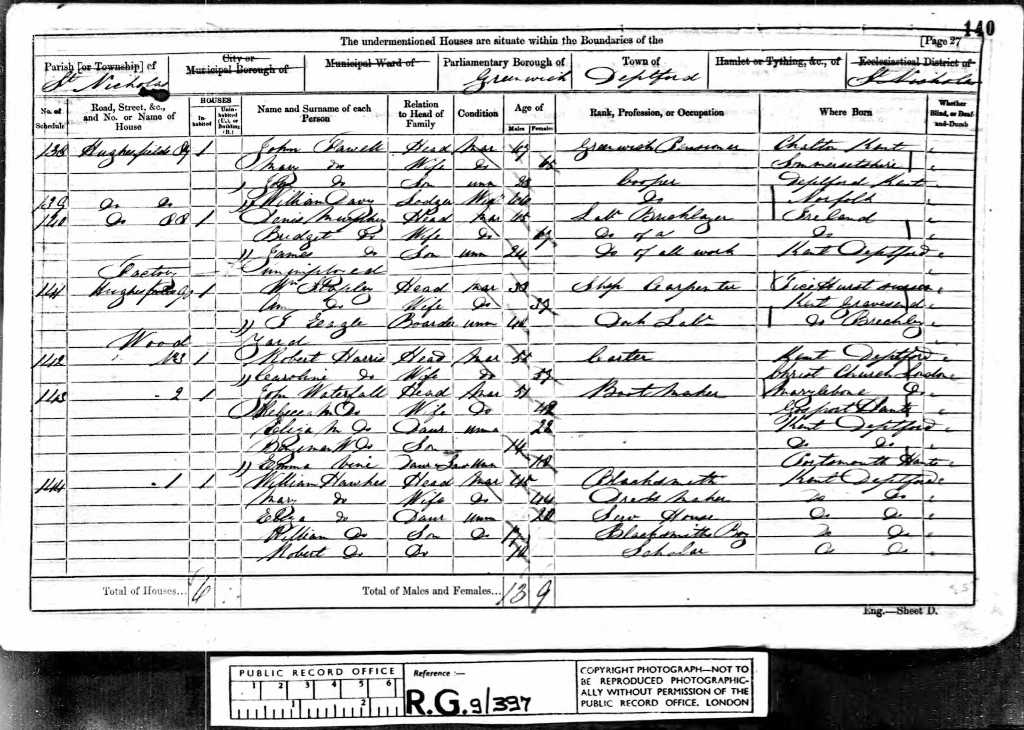 140
The undermentioned Houses are situate within the Boundaries of the [Page 27
Parish [or Township] of City or Municipal Borough of Municipal Ward of Parliamentary Borough of Town of Hamlet or Tything, &c., of Ecclesiastical District of
St Nicholas Greenwich Deptford St Nicholas
No. of Schedule Road, Street, &c., and No. or Name of House HOUSES Inhabited Uninhabited (U.), or Building (B.) Name and Surname of each Person Relation to Head of Family Condition Age of Males Females Rank, Profession, or Occupation Where Born Whether Blind, or Deaf-and-Dumb
138 1 John Head Mar Greenwich Pensioner Kent
Mary do Wife Do Sommersetshire
do Son unm Cooper Deptford Kent
139 Do Do William Davy Lodger Do Norfolk
Do 88 1 Denis Murphy Head Mar Labr Bricklayer Ireland
Bridget Do Wife Do Do of a Do
James Do Son unm 24 Do of all work Kent Deptford
Factory unimployed
1 Wm Head Mar Ship Carpenter Ticehurst
Ann Do Wife Do Kent Gravesend
Eagle Boarder unm Dock Labr Do
Wood Yard
142 1 Robert Harris Head Mar Carter Kent Deptford
Caroline Do Wife Do Christ Church London
143 2 1 John Waterfall Head Mar 51 Boot Maker Marylebone Do
Rebecca M Do Wife Do 42 Gosport Hants
Eliza M Do Daur unm 22 Kent Deptford
W Do Son 14 Do Do
Emma Vine Daur in Law Portsmouth Hants
144 1 1 William Hawkes Head Mar Blacksmith Kent Deptford
Mary do Wife Do 44 Dress Maker Do
Eliza do Daur unm 20 Sew House Do Do
William Do Son Do 17 Blacksmiths Boy Do
Robert Do Do Scholar Do Do
Total of Houses... 6 Total of Males and Females... 13 9
Eng.—Sheet D.
PUBLIC RECORD OFFICE
1 2 3 4 5 6
1 2
Reference :—
R.G. 9/397
COPYRIGHT PHOTOGRAPH—NOT TO
BE REPRODUCED PHOTOGRAPHIC-
ALLY WITHOUT PERMISSION OF THE
PUBLIC RECORD OFFICE, LONDON